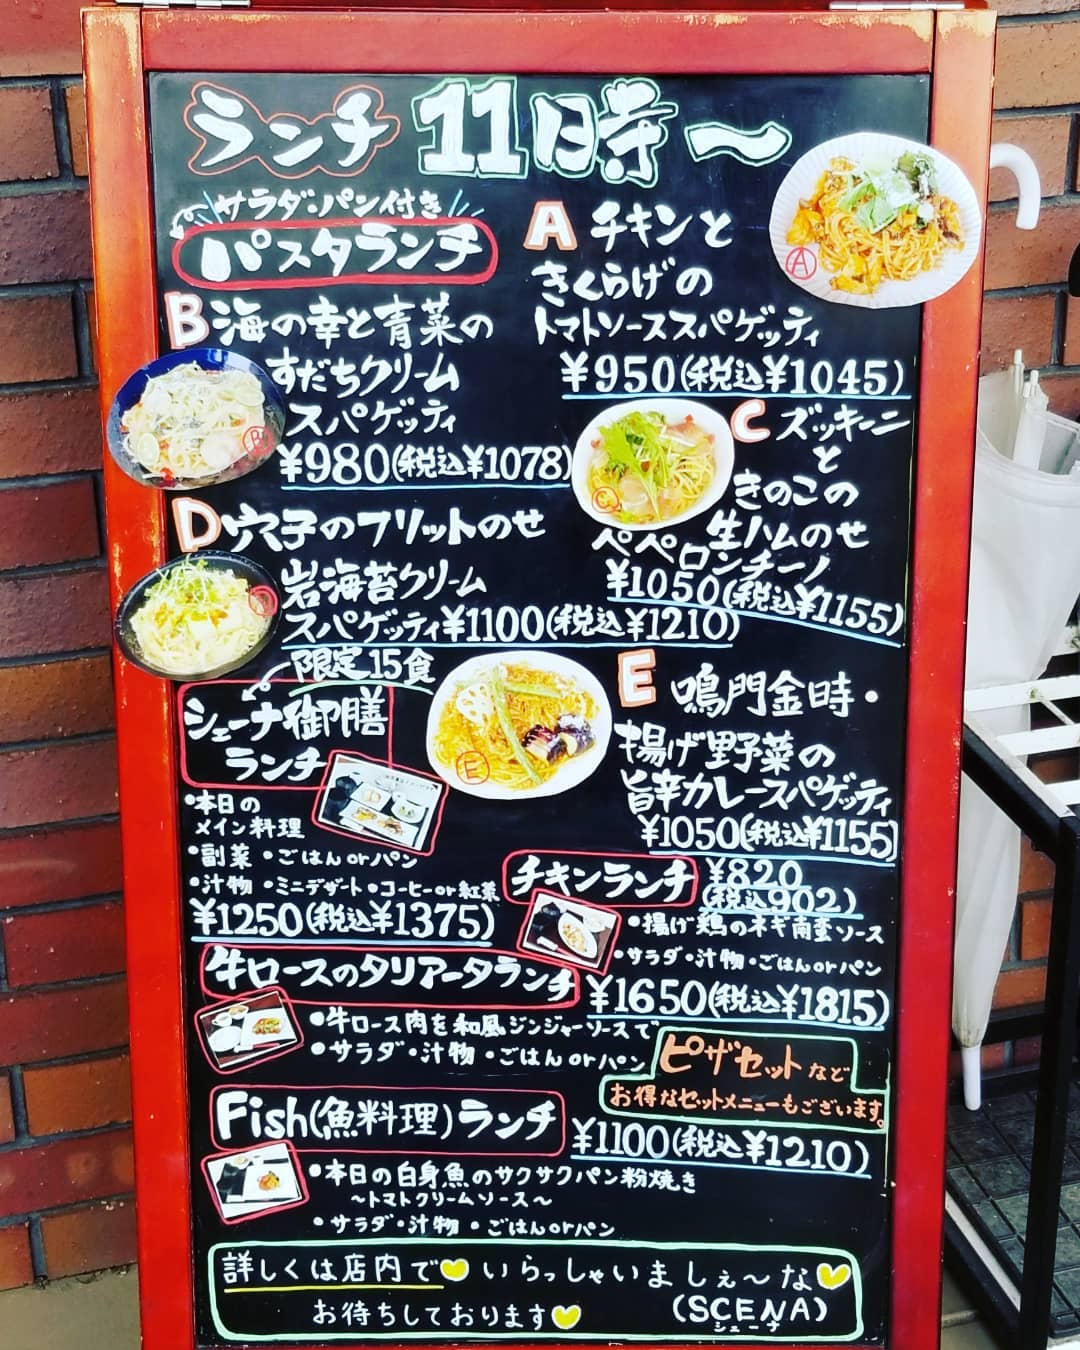 ランチ 11時〜
サラダ・パン付き
パスタランチ
A チキンと
きくらげの
トマトソーススパゲッティ
¥950(税込¥1045)
A
B 海の幸と青菜の
すだちクリーム
スパゲッティ
¥980(税込¥1078)
B
C ズッキーニ
と
きのこの
生ハムのせ
ペペロンチーノ
¥1050(税込¥1155)
C
D 穴子のフリットのせ
岩海苔クリーム
スパゲッティ¥1100(税込¥1210)
D
E 鳴門金時・
揚げ野菜の
旨辛カレースパゲッティ
¥1050(税込¥1155)
E
限定15食
シェーナ御膳
ランチ
・本日の
メイン料理
・副菜 ・ごはんorパン
・汁物 ・ミニデザート・コーヒーor紅茶
¥1250(税込¥1375)
チキンランチ ¥820
(税込902)
・揚げ鶏のネギ南蛮ソース
・サラダ・汁物・ごはんorパン
牛ロースのタリアータランチ
¥1650(税込¥1815)
・牛ロース肉を和風ジンジャーソースで
・サラダ・汁物・ごはんorパン
ピザセットなど
お得なセットメニューもございます。
Fish(魚料理)ランチ
¥1100(税込¥1210)
・本日の白身魚のサクサクパン粉焼き
〜トマトクリームソース〜
・サラダ・汁物・ごはんorパン
詳しくは店内で いらっしゃいましぇ〜な
お待ちしております (SCENA)
シェーナ